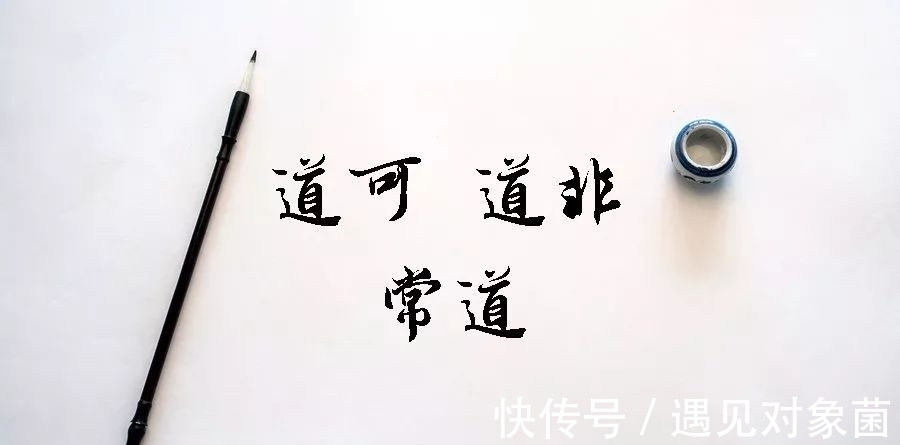 道可 道非
常道
快传号 / 遇见对象菌